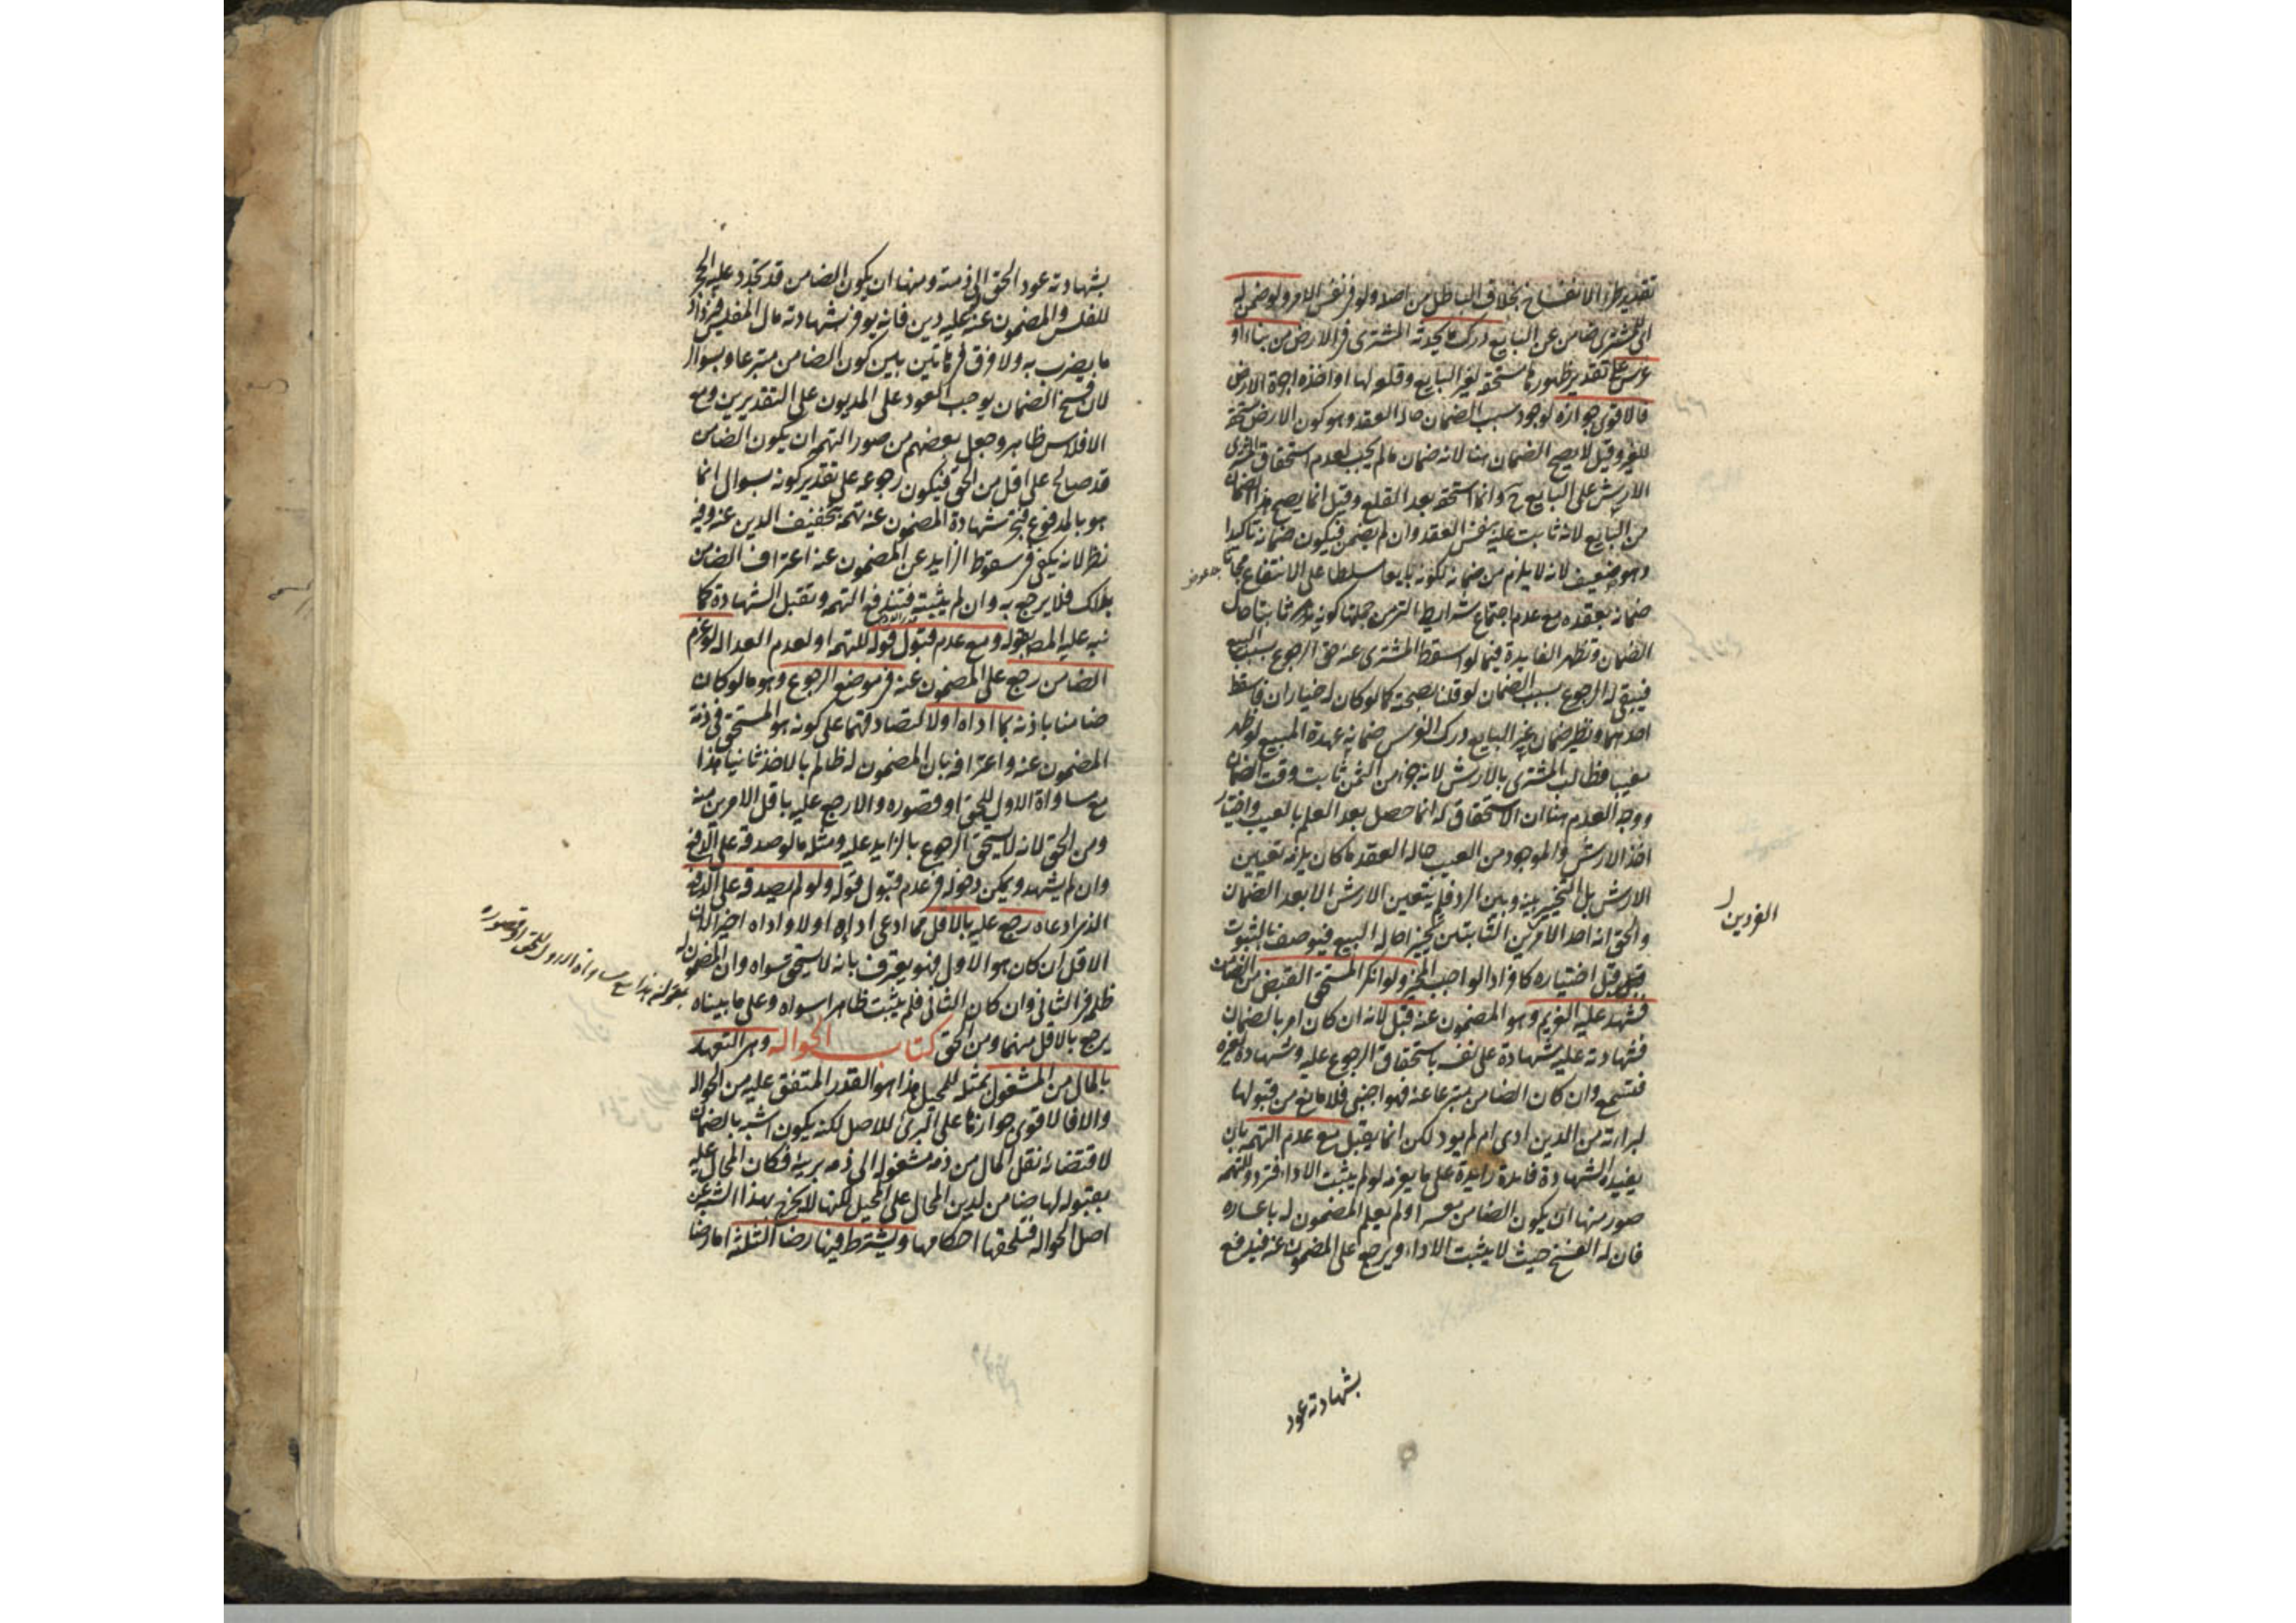 تقدير طرا الانفساخ بخلاف الباطل من اصله ولو في نفس الامر ولو ضمن له
اى للمشترى ضامن عن البايع درك ما يحدثه المشترى في الارض من بناء او
غرس على تقدير ظهورها مستحقة لغير البايع وقلعه لها او اخذه اجرة الارض
فالاقوى جوازه لوجود سبب الضمان حالة العقد وهو كون الارض مستحقة
للغير وقيل لا يصح الضمان هنا لانه ضمان ما لم يجب لعدم استحقاق المشترى
الارش على البايع ح وانما استحقه بعد القلع وقيل انما يصح هذا الضمان
من البايع لانه ثابت عليه بنفس العقد وان لم يضمن فيكون ضمانه تاكيدا
وهو ضعيف لانه لا يلزم من ضمانه لكونه بايعا مسلطا على الانتفاع مجانا
ضمانه بعقده مع عدم اجتماع شرايط التي من جملتها كونه ثابتا حال
الضمان وتظهر الفايدة فيما لو اسقط المشترى عنه حق الرجوع بسبب البيع
فيبقى له الرجوع بسبب الضمان لو قلنا بصحته كما لو كان له خياران فاسقط
احدهما ونظير ضمان غير البايع درك الغرس ضمانه عهدة المبيع لو ظهر
معيبا فطالب المشترى بالارش لانه جزء من الثمن ثابت وقت الضمان
ووجه العدم هنا ان الاستحقاق له انما حصل بعد العلم بالعيب واختيار
اخذ الارش والموجود من العيب حالة العقد ما كان يلزمه تعيين
الارش بل التخيير بينه وبين الرد فلم يتعين الارش الا بعد الضمان
والحق انه احد الامرين الثابتين تخييرا حالة البيع فيوصف بالثبوت
قبل اختياره كافراد الواجب المخير ولو انكر المستحق القبض من الضامن
فشهد عليه الغريم وهو المضمون عنه قبل لانه ان كان امر بالضمان
فشهادته عليه شهادة على نفسه باستحقاق الرجوع عليه وشهادة لغيره
فتسمع وان كان الضامن متبرعا عنه فهو اجنبى فلا مانع من قبولها
لبرائته من الدين ادى ام لم يود لكن انما يقبل مع عدم التهمه بان
يفيده الشهادة فايدة زايدة على ما يغرمه لو لم يثبت الاداء فترد وللتهمه
صور منها ان يكون الضامن معسرا ولم يعلم المضمون له باعساره
فان له الفسخ حيث لا يثبت الاداء ويرجع على المضمون عنه فيدفع
الفردين
بشهادته عود
بشهادته عود الحق الى ذمته ومنها ان يكون الضامن قد تجدد عليه الحجر
للفلس وللمضمون عنه عليه دين فانه يوفر بشهادته مال المفلس فيزداد
ما يضرب به ولا فرق في هاتين بين كون الضامن متبرعا وبسؤال
لان فسخ الضمان يوجب العود على المديون على التقديرين ومع
الافلاس ظاهر وجعل بعضهم من صور التهمه ان يكون الضامن
قد صالح على اقل من الحق فيكون رجوعه على تقدير كونه بسؤال انما
هو بالمدفوع فتجر شهادة المضمون عنه تهمة بتخفيف الدين عنه وفيه
نظر لانه يكفى في سقوط الزايد عن المضمون عنه اعتراف الضامن
بذلك فلا يرجع به وان لم يثبته فتندفع التهمه وتقبل الشهادة كما
نبه عليه المص بقوله ومع عدم قبول قوله للتهمه او لعدم العدالة لو غرم
الضامن رجع على المضمون عنه في موضع الرجوع وهو ما لو كان
ضامنا باذنه بما اداه اولا لتصادقهما على كونه هو المستحق في ذمة
المضمون عنه واعترافه بان المضمون له ظالم بالاخذ ثانيا هذا
مع مساواة الاول للحق او قصوره والا رجع عليه باقل الامرين منه
ومن الحق لانه لا يستحق الرجوع بالزايد عليه ومثله ما لو صدقه على الدفع
وان لم يشهد ويمكن دخوله في عدم قبول قوله ولو لم يصدقه على الدفع
الذى ادعاه رجع عليه بالاقل مما ادعى اداءه اولا واداه اخيرا لان
الاقل ان كان هو الاول فهو يعترف بانه لا يستحق سواه وان المضمون له
ظلمه في الثانى وان كان الثانى فلم يثبت ظاهرا سواه وعلى ما بيناه
يرجع بالاقل منهما ومن الحق كتاب الحوالة وهى التعهد
بالمال من المشغول بمثله للمحيل هذا هو القدر المتفق عليه من الحوالة
والا فالاقوى جوازها على البرى للاصل لكنه يكون اشبه بالضمان
لاقتضائه نقل المال من ذمه مشغولة الى ذمه بريئة فكان المحال عليه
بقبوله لها ضامن لدين المحال على المحيل لكنها لا يخرج بهذا الشبه عن
اصل الحوالة فتلحقها احكامها ويشترط فيها رضا الثلثة اما رضا
بقوله هذا مع مساواة الاول للحق او قصوره